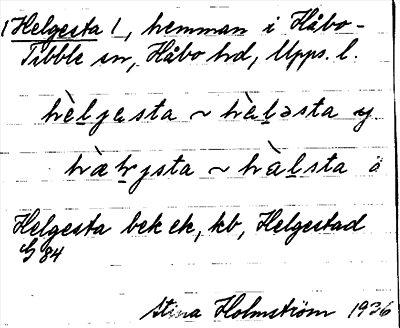 1 Helgesta 1, hemman i Håbo-
Tibble sn, Håbo hd, Upps. l.
hèlgesta ~ hàləsta y
hælgsta ~ hàlsta ä
Helgesta bek ek, kb, Helgestad
G 84
Stina Holmström 1936